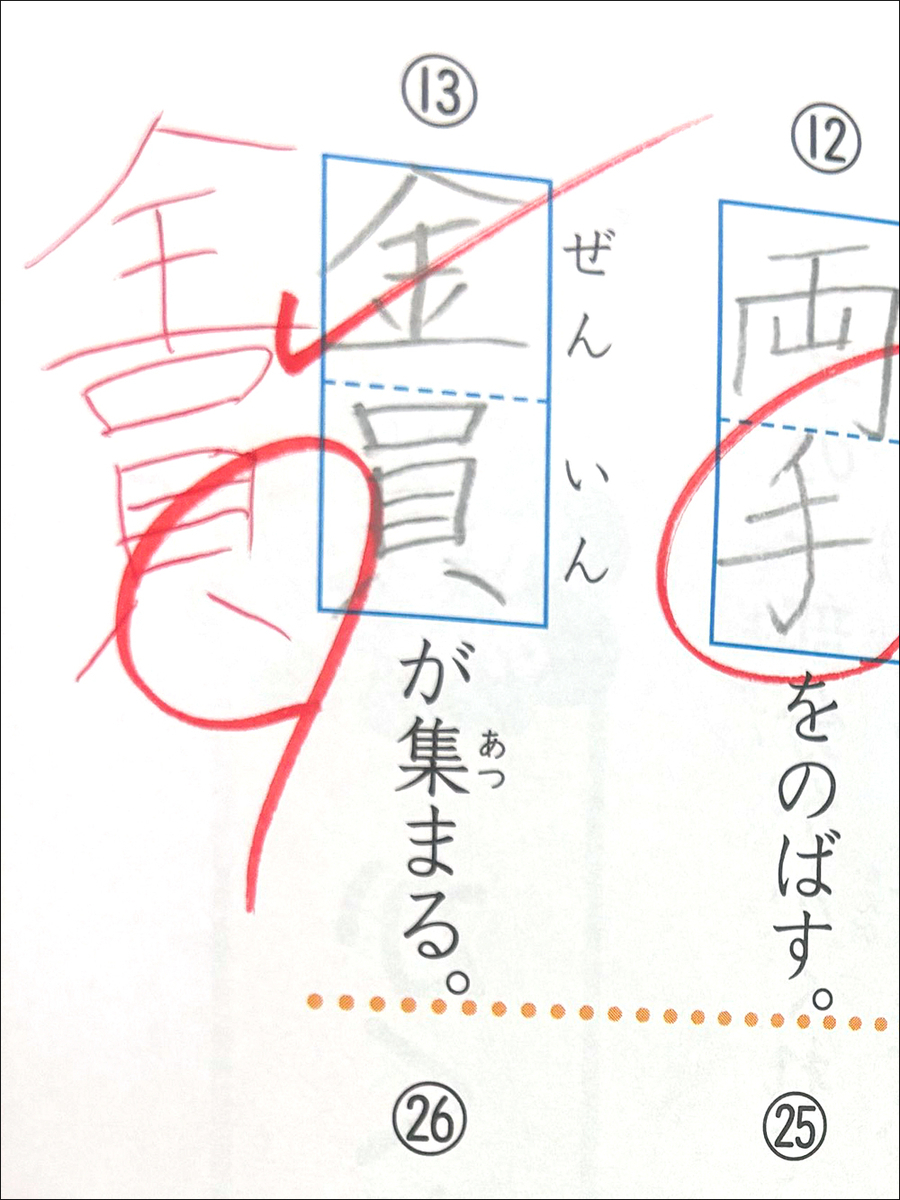 ⑫
両手をのばす。
⑬
ぜんいん
金員が集まる。
あつ
全員
㉕
㉖